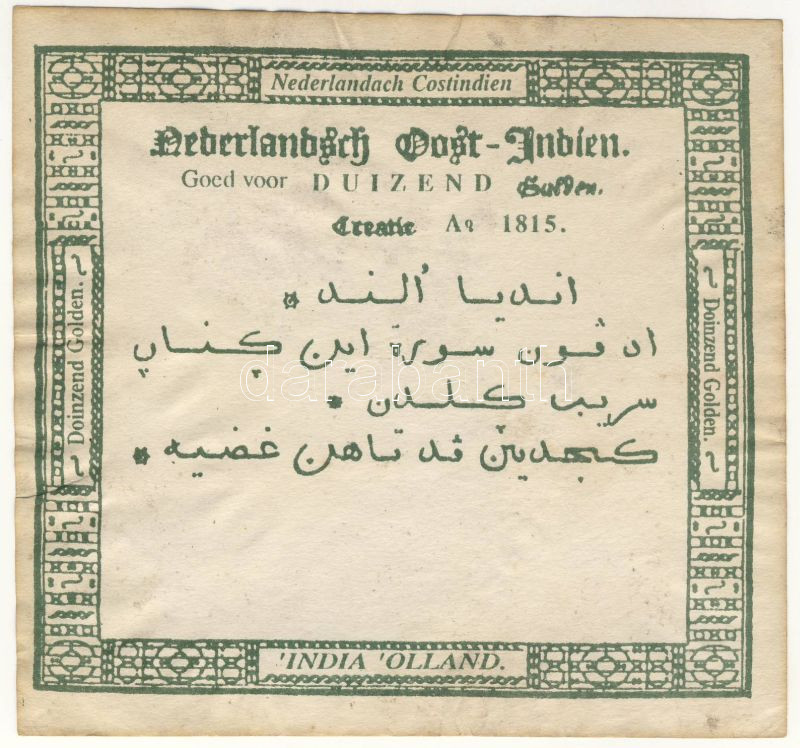 Nederlandach Costindien
Nederlandsch Oost-Indien.
Goed voor DUIZEND Gulden.
Creatie Aº 1815.
اندیا اُلند *
اد ڤون سورة این
سریب کلدن *
ڤد تاهن غضیه *
~ Doinzend Golden. ~
~ Doinzend Golden. ~
'INDIA 'OLLAND.
darabanth